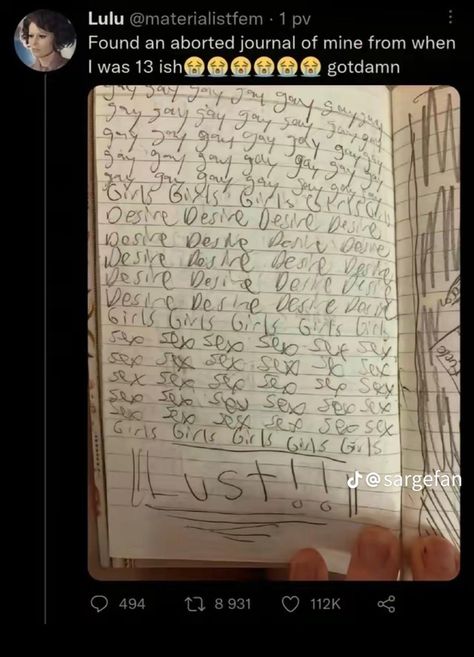 Lulu @materialistfem · 1 pv
Found an aborted journal of mine from when
I was 13 ish😭😭😭😭😭😭 gotdamn
gay gay gay gay gay gay gay
gay gay gay gay gay gay gay
gay gay gay gay gay gay gay
gay gay gay gay gay gay gay
gay gay gay gay gay gay gay
Girls Girls Girls Girls Girls
Desire Desire Desire Desire
Desire Desire Desire Desire
Desire Desire Desire Desire
Desire Desire Desire Desire
Desire Desire Desire Desire
Girls Girls Girls Girls Girls
sex sex sex sex sex sex
sex sex sex sex sx sex
sex sex sex sex sex sexy
sex sex sex sex sex sex
sex sex sex sex sex sex
Girls Girls Girls Girls Girls
Lust!!
@sargefan
494 8 931 112K